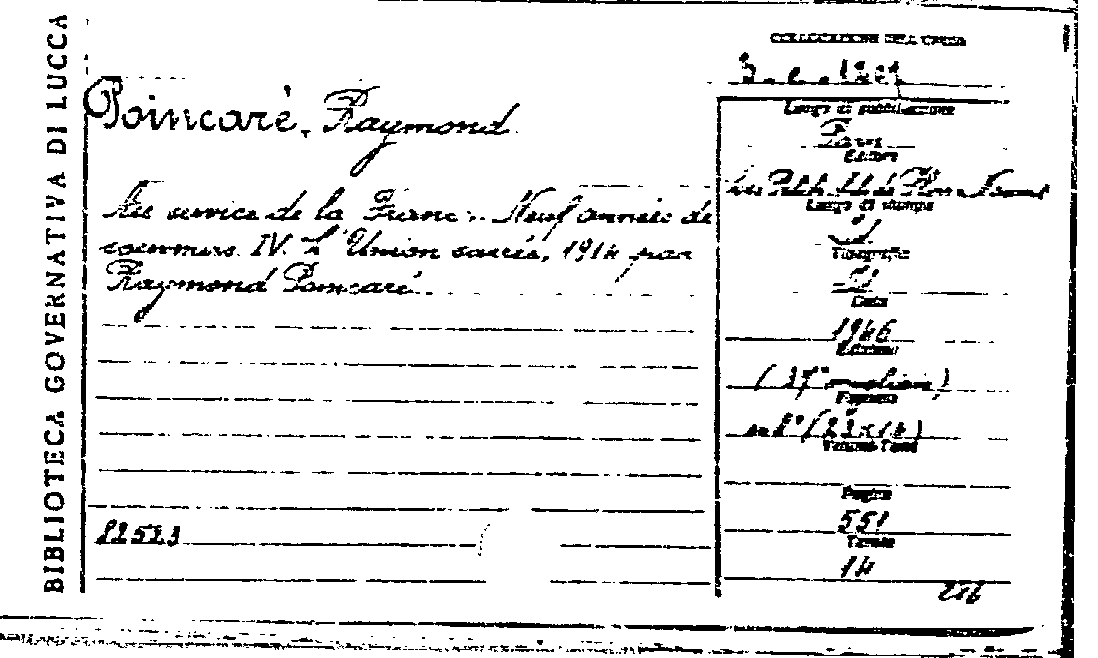 BIBLIOTECA GOVERNATIVA DI LUCCA
COLLOCAZIONE DELL'OPERA
Poincaré, Raymond
Au service de la France. Neuf années de
souvenirs. IV. L'Union sacrée, 1914 par
Raymond Poincaré.
82523
Luogo di pubblicazione
Paris
Editore
Plon
Luogo di stampa
Tipografia
Data
1946
Edizione
Formato
in 8°
Volume-Tomo
Pagine
551
Tavole
14
226